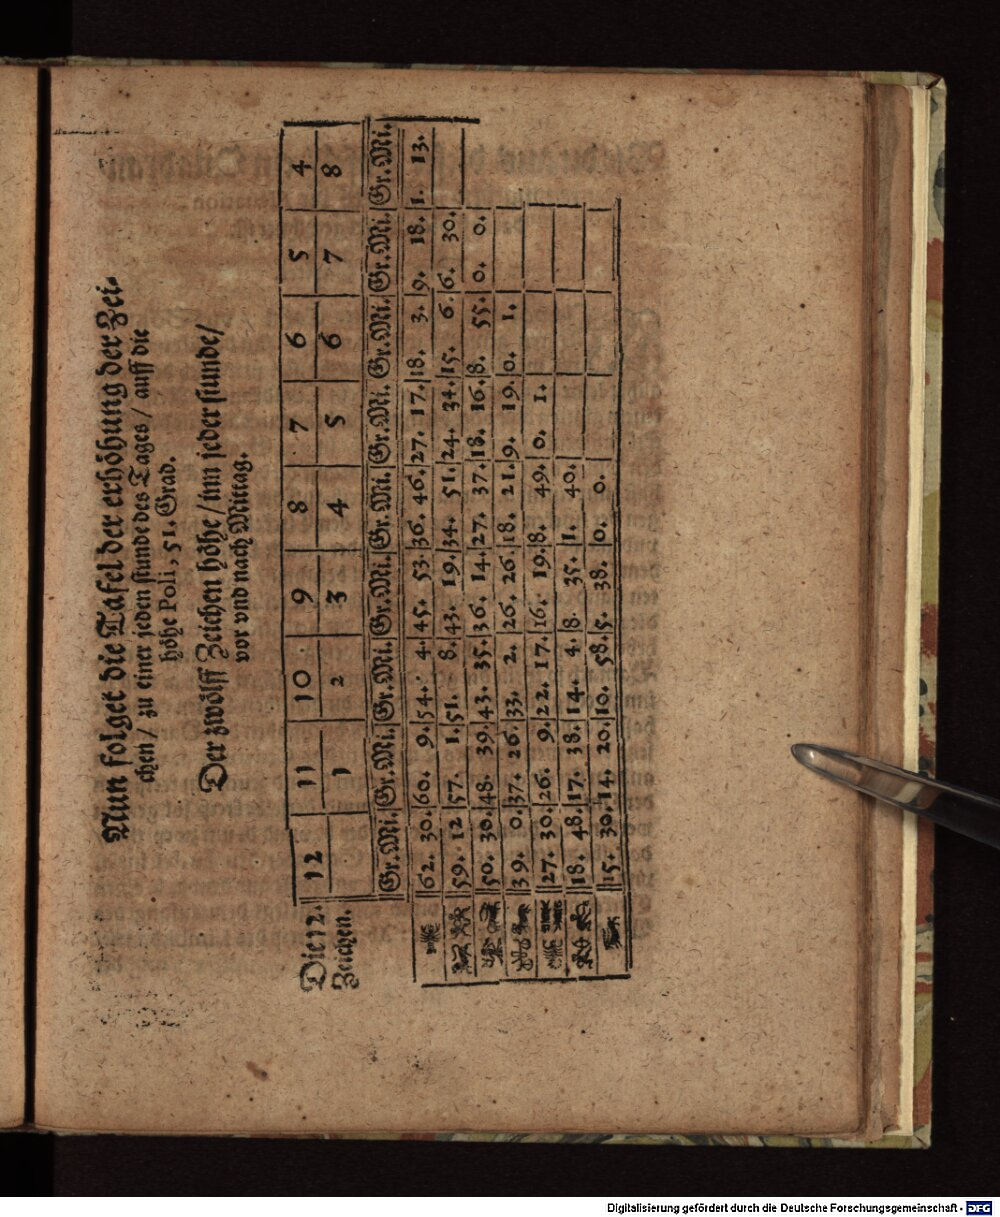 Nun folget die Tafel der erhöhung der Zei-
chen / zu einer jeden stunde des Tages / auff die
höhe Poli, 51. Grad.
Der zwölff Zeichen höhe / inn jeder stunde /
vor vnd nach Mittag.
Die 12. Zeichen. 12 11 10 9 8 7 6 5 4
1 2 3 4 5 6 7 8
Gr. Mi. Gr. Mi. Gr. Mi. Gr. Mi. Gr. Mi. Gr. Mi. Gr. Mi. Gr. Mi. Gr. Mi.
62. 30. 60. 9. 54. 4. 45. 53. 36. 46. 27. 17. 18. 3. 9. 18. 1. 13.
59. 12 57. 1. 51. 8. 43. 19. 34. 51. 24. 34. 15. 6. 6. 30.
50. 30. 48. 39. 43. 35. 36. 14. 27. 37. 18. 16. 8. 55. 0. 0.
39. 0. 37. 26. 33. 2. 26. 26. 18. 21. 9. 19. 0. 1.
27. 30. 26. 9. 22. 17. 16. 19. 8. 49. 0. 1.
18. 48. 17. 38. 14. 4. 8. 35. 1. 40.
15. 30. 14. 20. 10. 58. 5. 38. 0. 0.
Digitalisierung gefördert durch die Deutsche Forschungsgemeinschaft - DFG